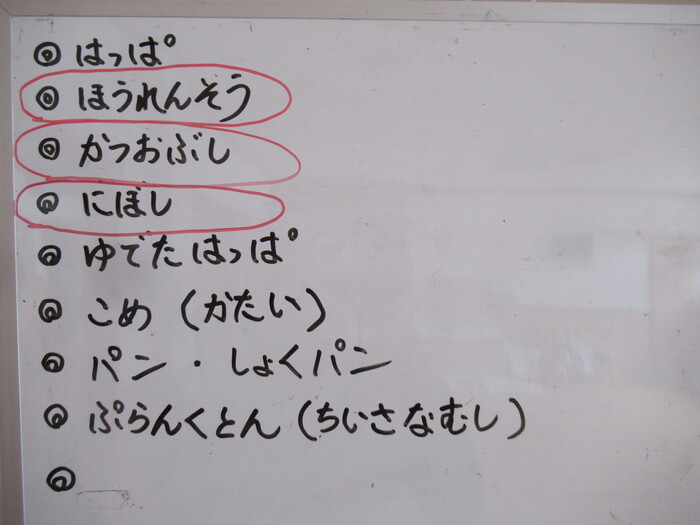 ◎ はっぱ
◎ ほうれんそう
◎ かつおぶし
◎ にぼし
◎ ゆでたはっぱ
◎ こめ(かたい)
◎ パン・しょくパン
◎ ぷらんくとん(ちいさなむし)
◎